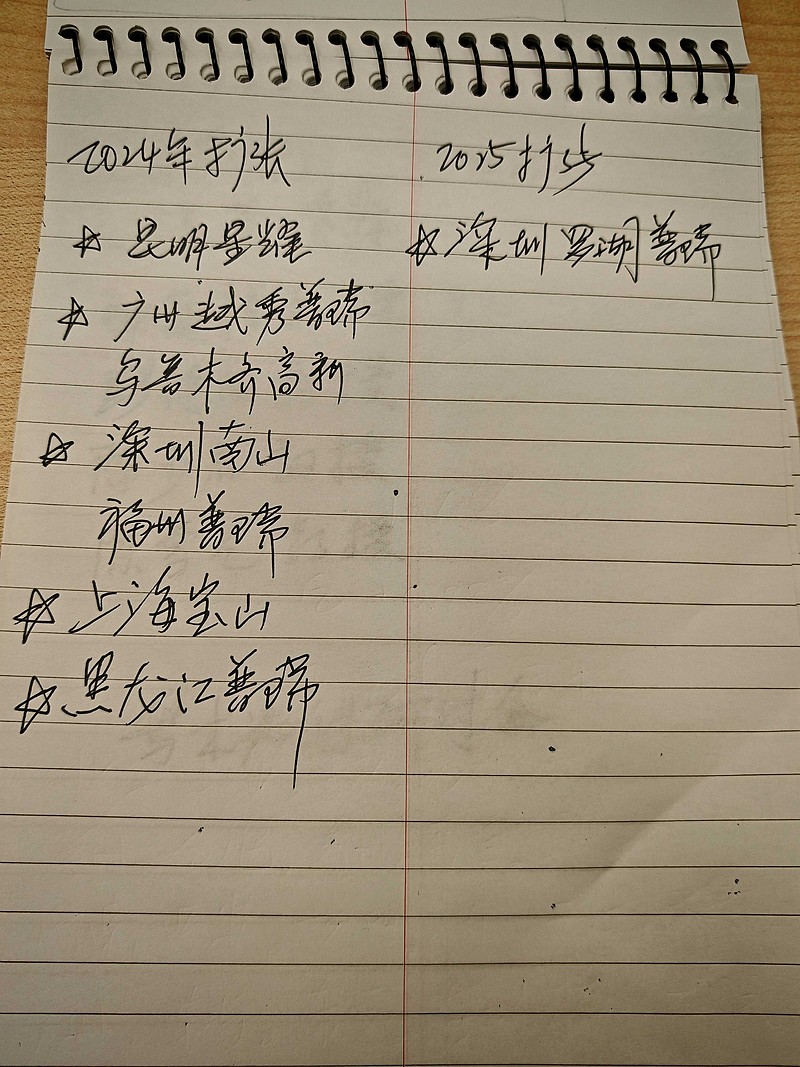 2024年扩张
☆ 昆明星耀
☆ 广州越秀普瑞
乌鲁木齐高新
☆ 深圳南山
福州普瑞
☆ 上海宝山
☆ 黑龙江普瑞
2025扩张
☆ 深圳罗湖普瑞